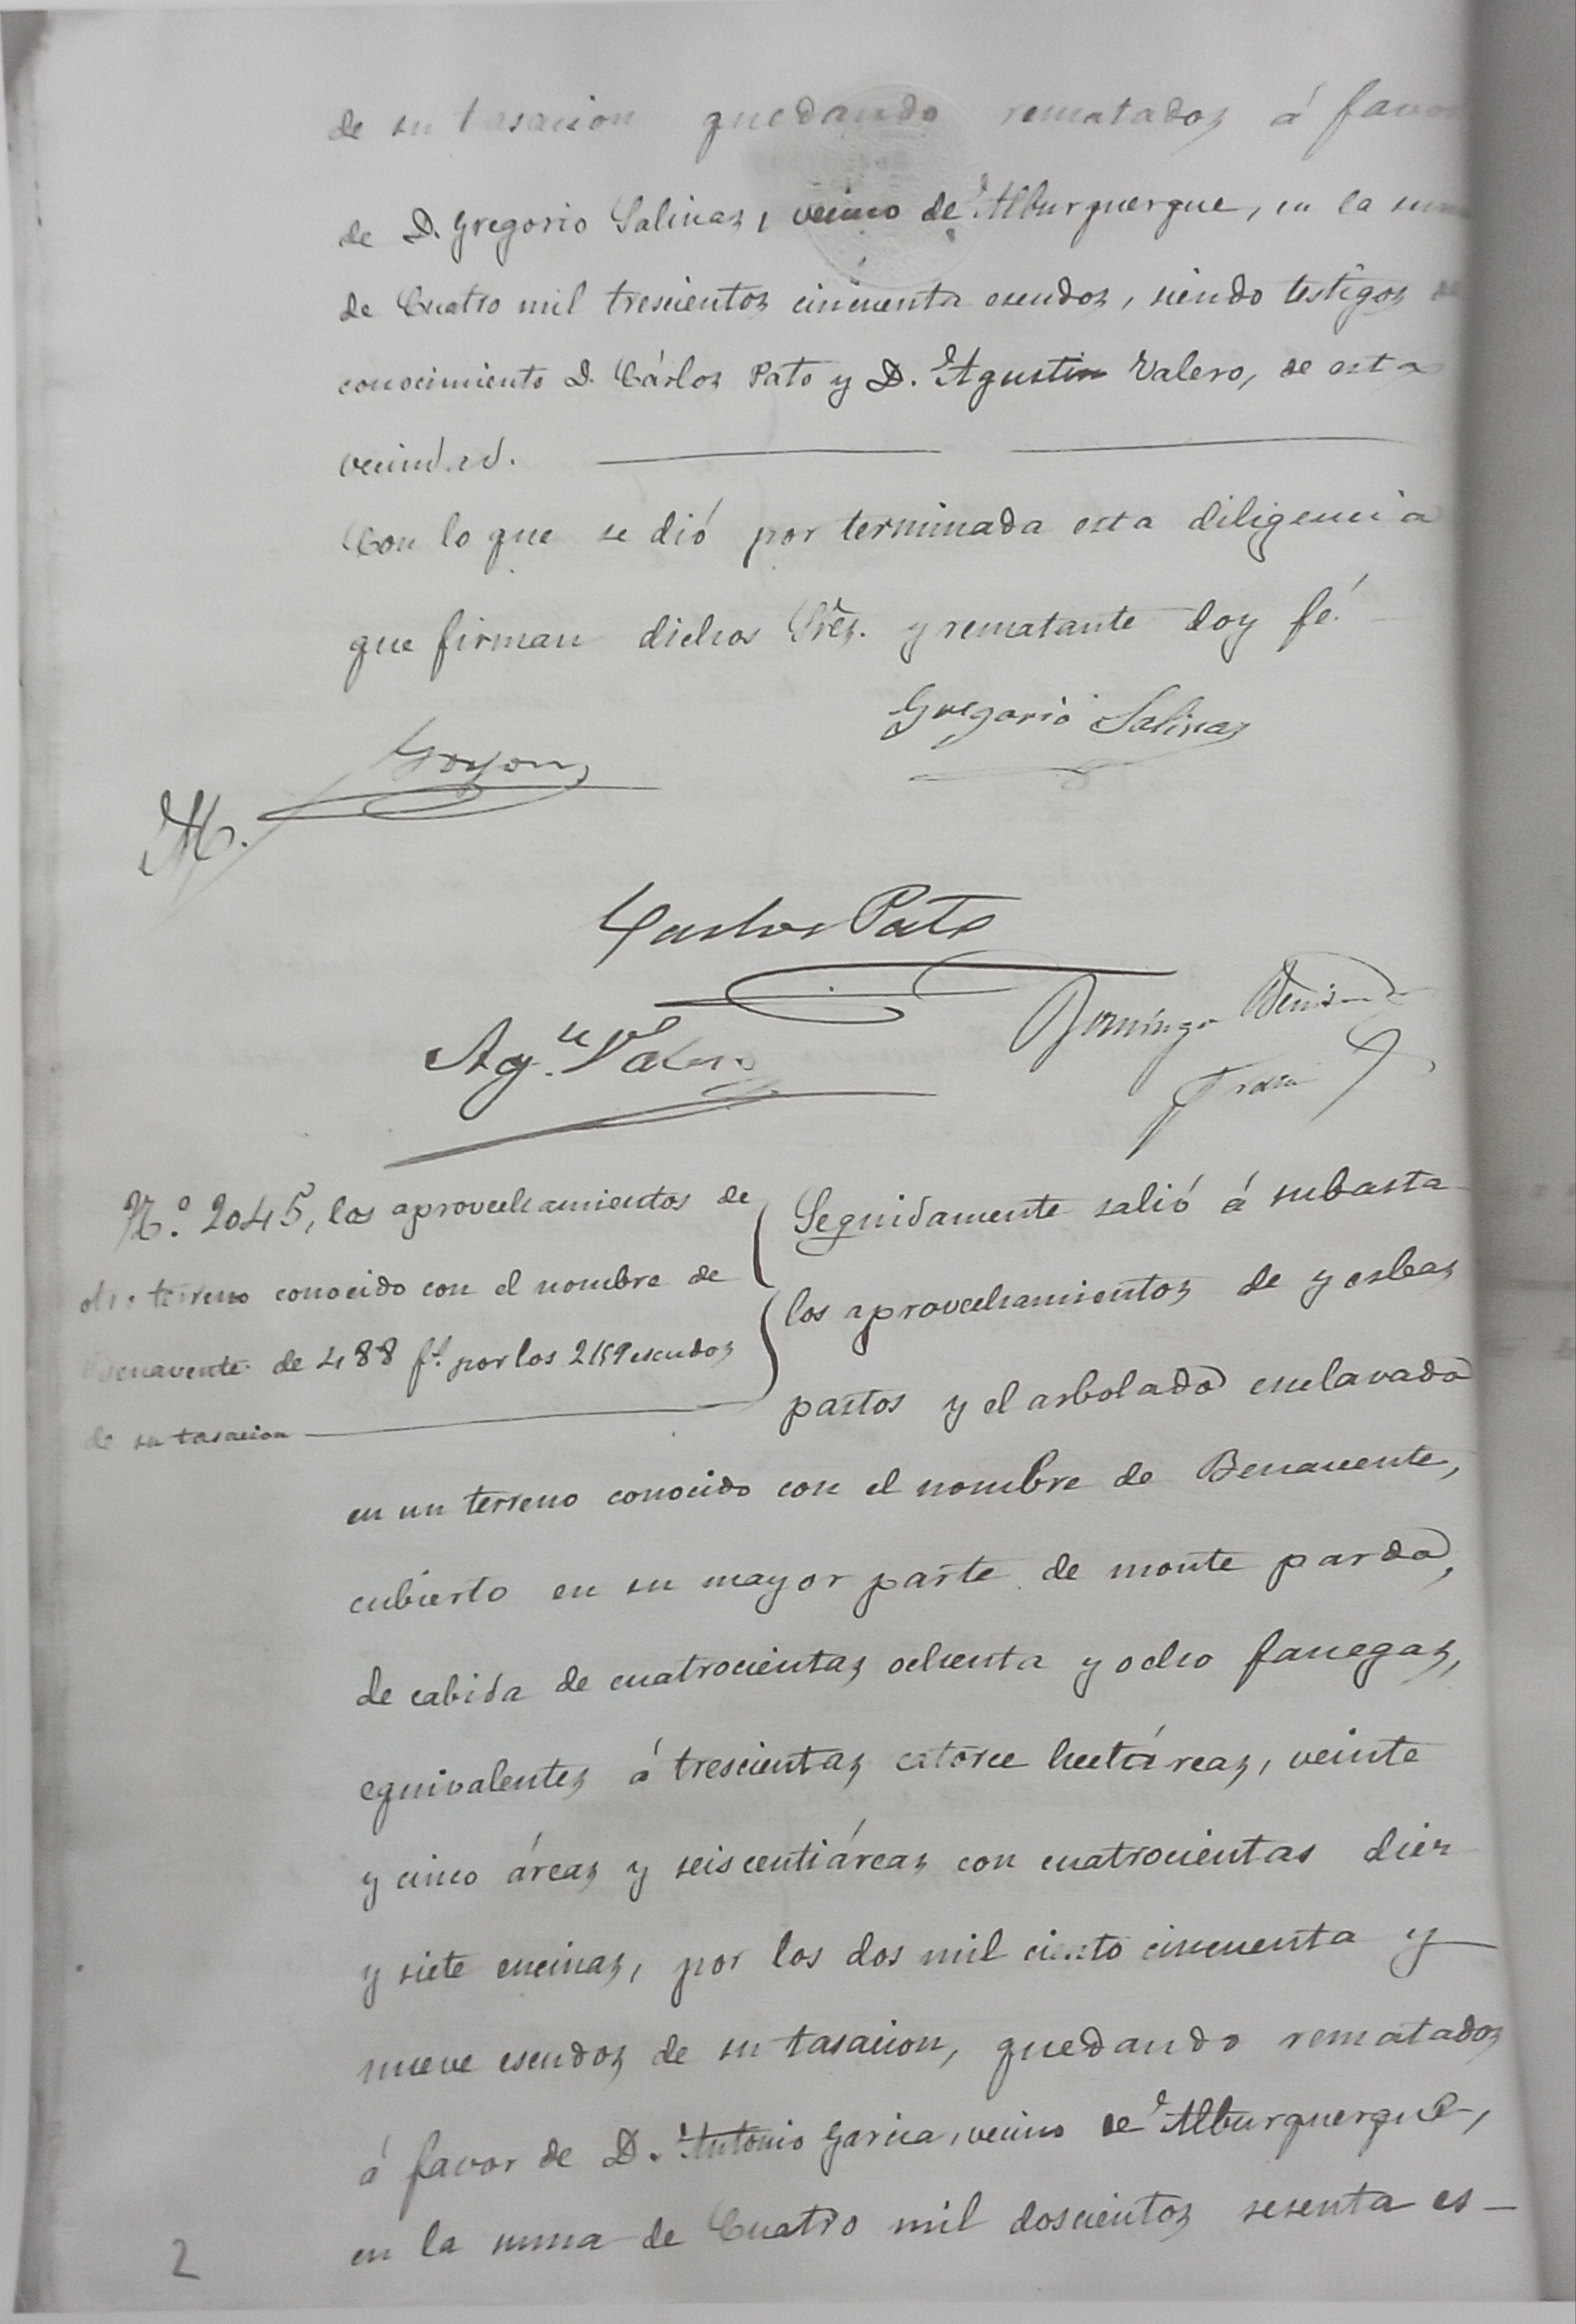 de su tasacion quedando rematados á favor
de D. Gregorio Salinas, vecino de Alburquerque, en la suma
de Cuatro mil trescientos cincuenta escudos, siendo testigos
conocimiento D. Cárlos Pato y D. Agustin Valero, de esta
vecindad.
Con lo que se dió por terminada esta diligencia
que firman dichos Sres. y rematante doy fé.
Gregorio Salinas
M.
Carlos Pato
Ag.n Valero
Domingo
N.º 2045, los aprovechamientos de
terreno conocido con el nombre de
Benavente de 488 f.s por los 2159 escudos
de su tasacion
Seguidamente salió á subasta
los aprovechamientos de yerbas
pastos y el arbolado enclavado
en un terreno conocido con el nombre de Benavente,
cubierto en su mayor parte de monte pardo,
de cabida de cuatrocientas ochenta y ocho fanegas,
equivalentes á trescientas catorce hectáreas, veinte
y cinco áreas y seis centiáreas con cuatrocientas diez
y siete encinas, por los dos mil ciento cincuenta y
nueve escudos de su tasacion, quedando rematados
á favor de D. Antonio Garcia, vecino de Alburquerque,
en la suma de Cuatro mil doscientos sesenta es-
2